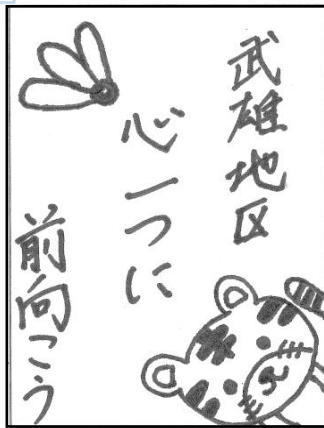 武雄地区
心一つに
前向こう